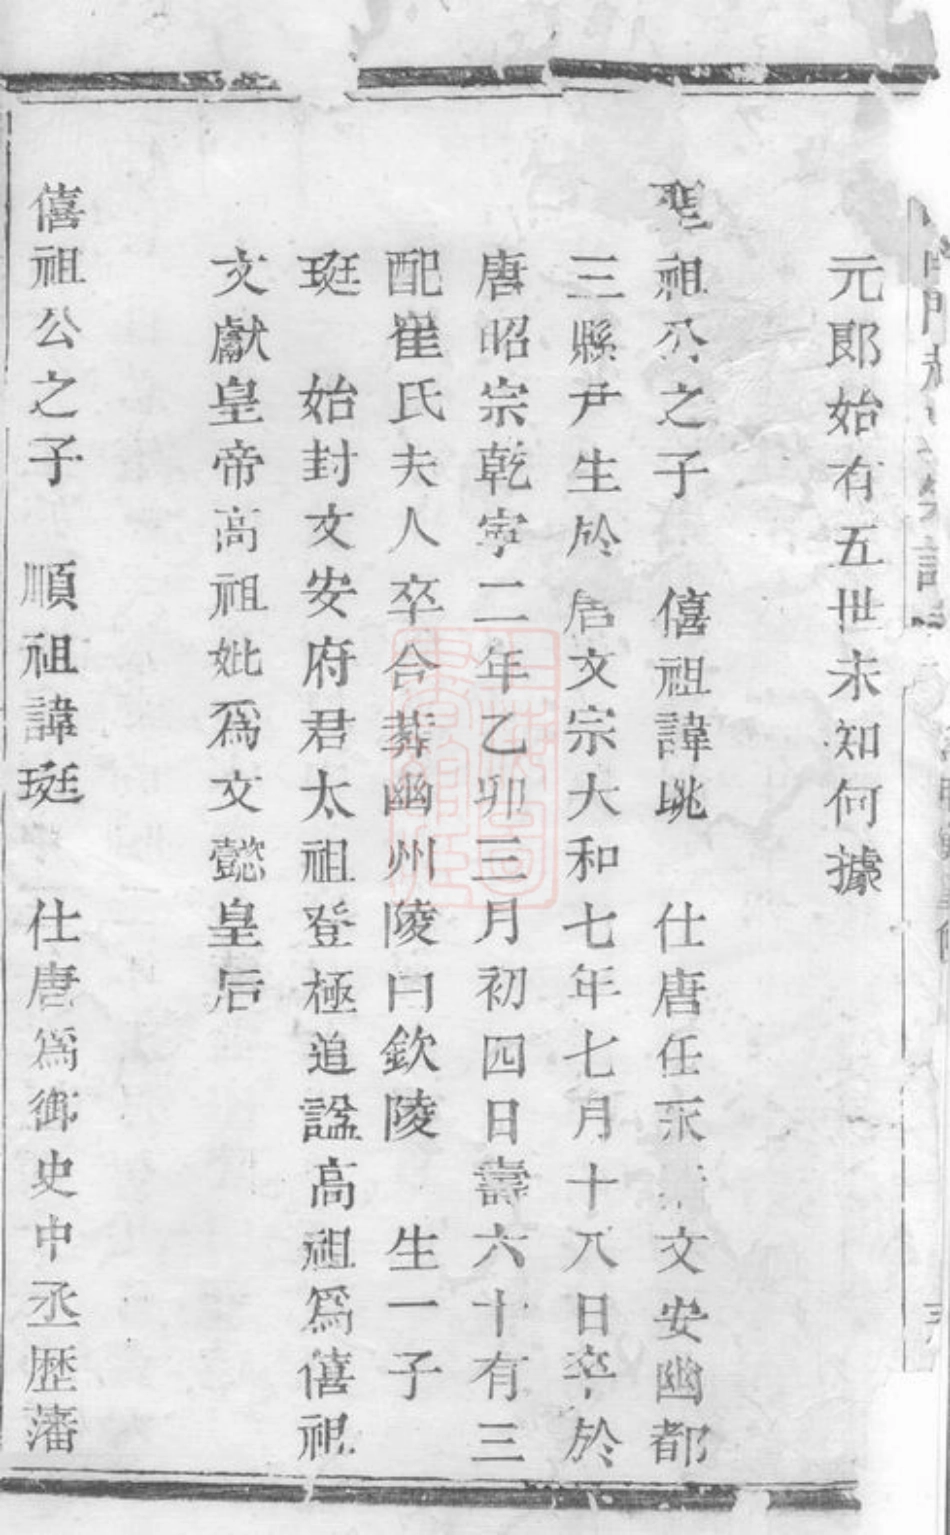 元郎始有五世未知何據
聖祖公之子 僖祖諱珧 仕唐任永清文安幽都
三縣尹生於唐文宗大和七年七月十八日卒於
唐昭宗乾寜二年乙卯三月初四日壽六十有三
配崔氏夫人卒合葬幽州陵曰欽陵 生一子
珽 始封文安府君太祖登極追謚高祖爲僖祖
文獻皇帝高祖妣爲文懿皇后
僖祖公之子 順祖諱珽 仕唐爲御史中丞歴藩